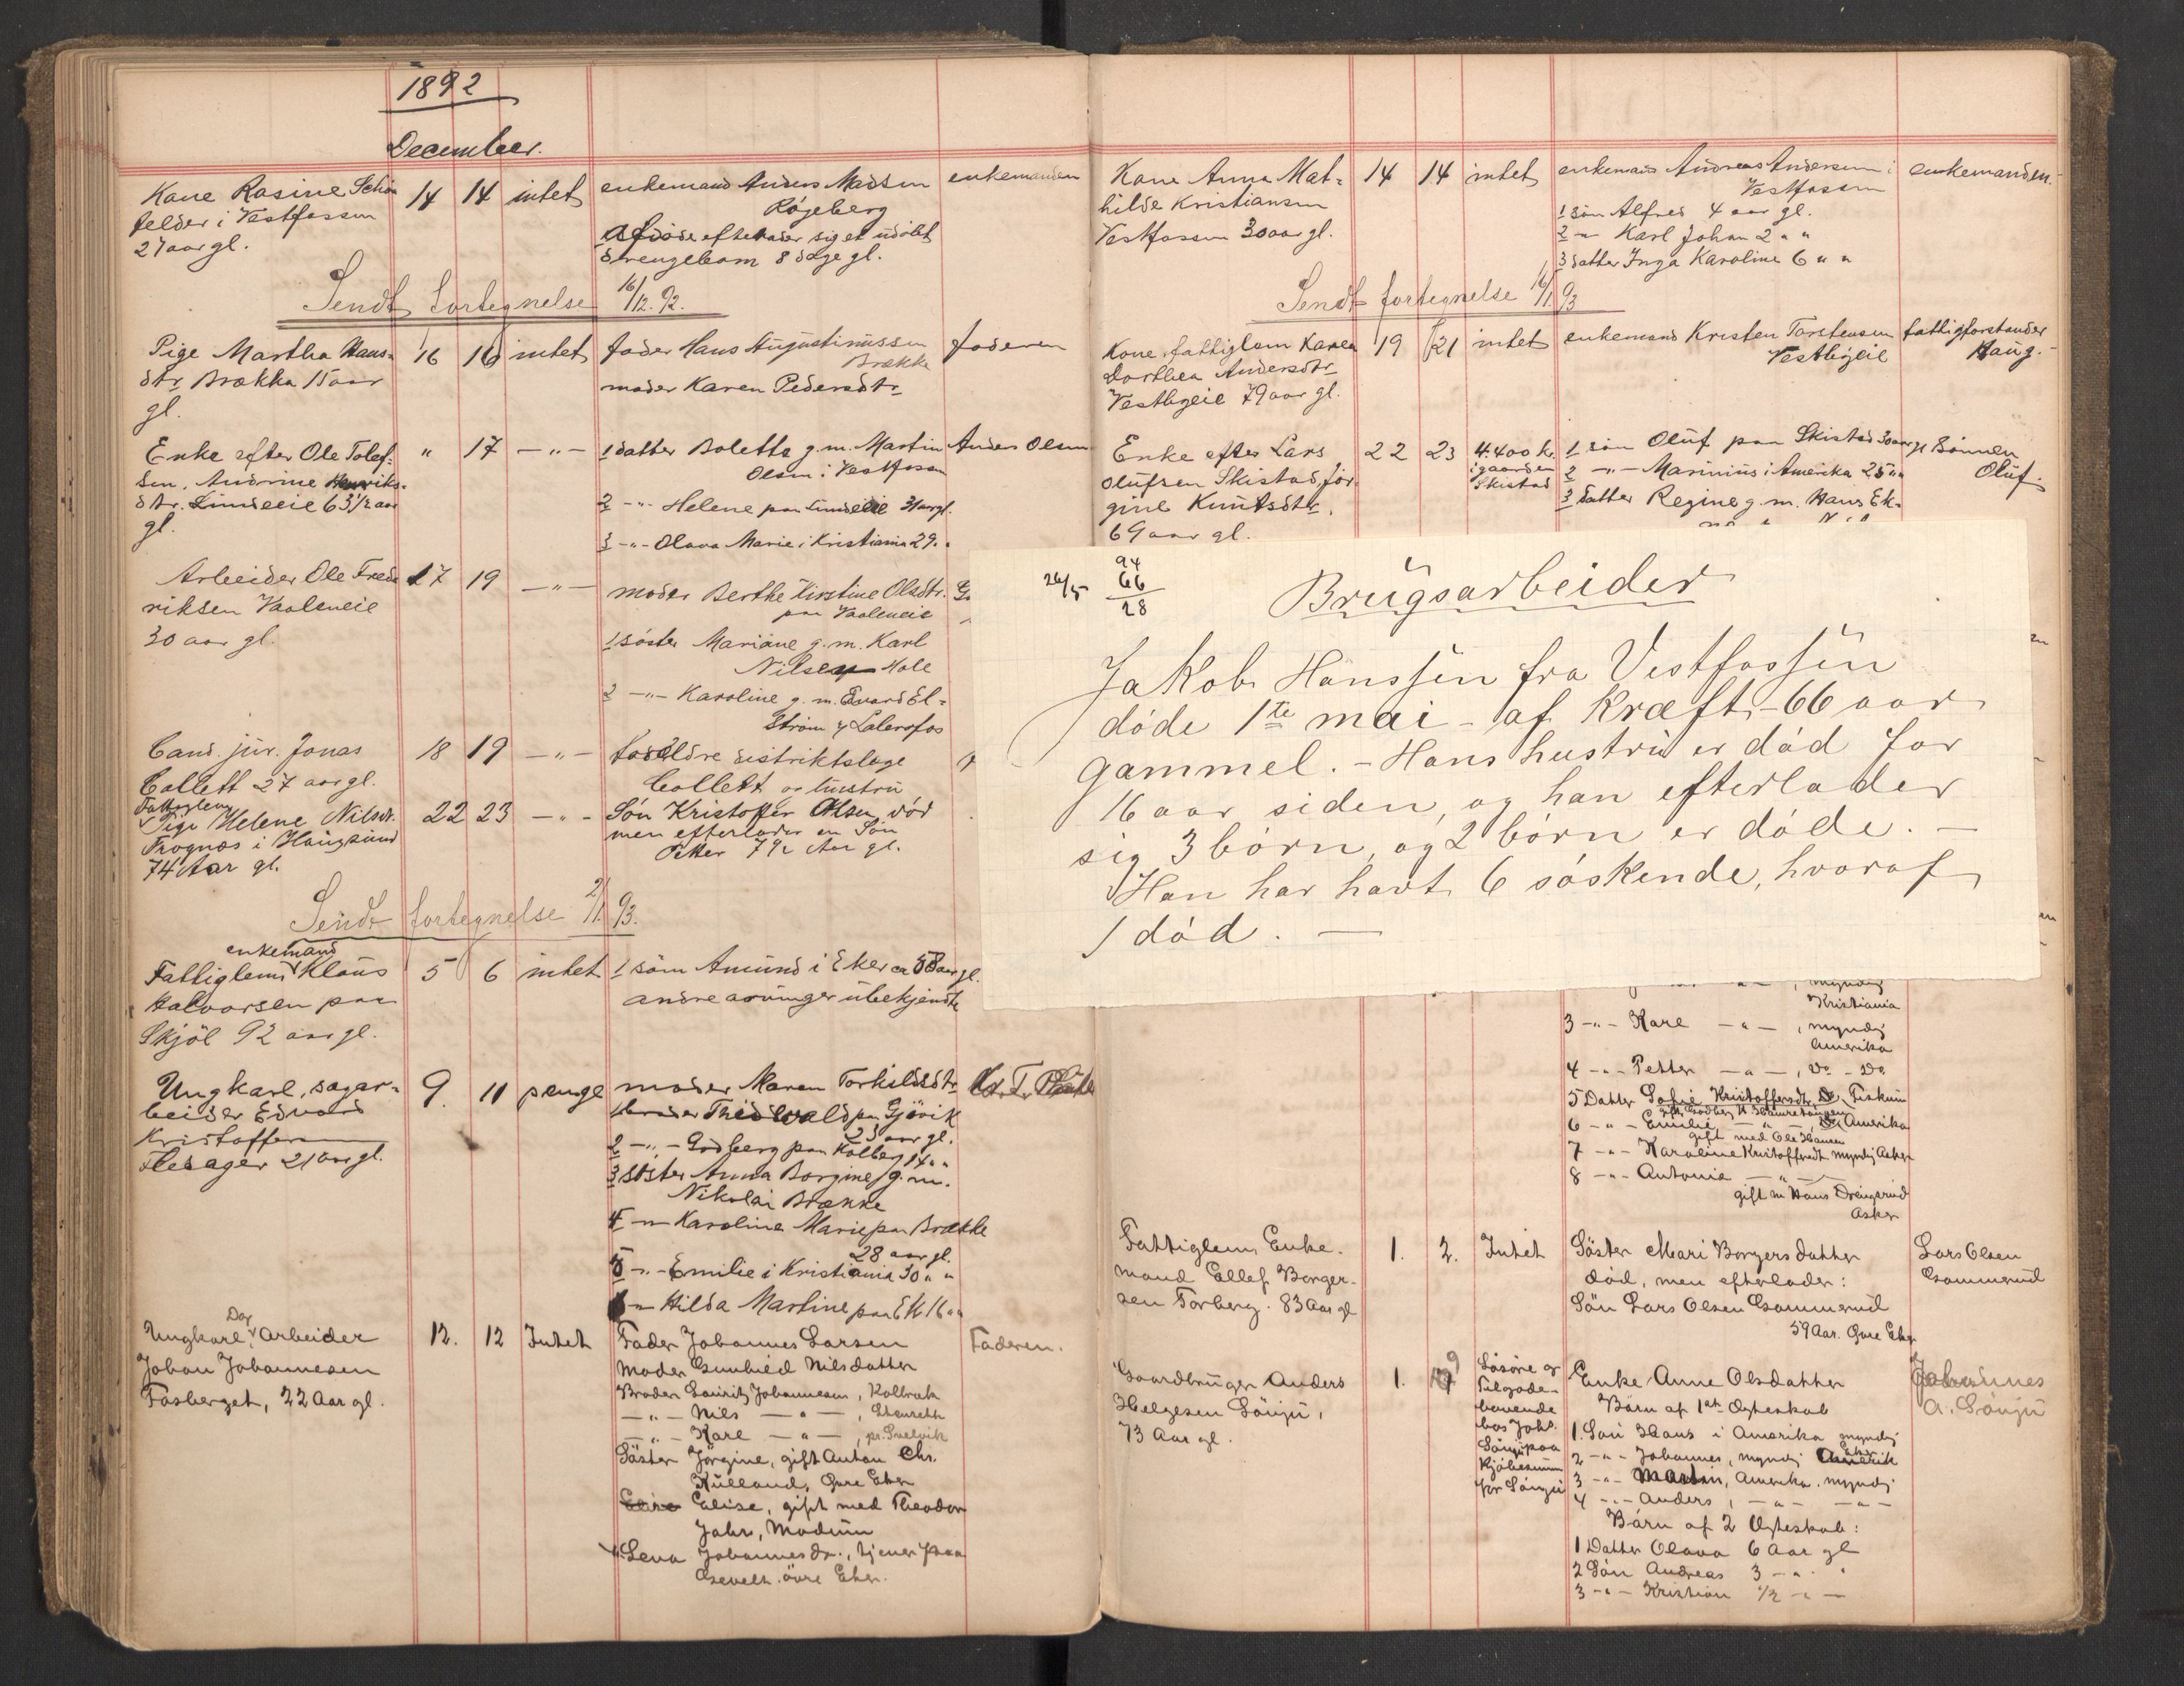 1892
December.
Kone Rosine Schön
felder i Vestfossen
27 aar gl.
14 14 intet
enkemand Anders Madsen
Røgeberg
Afdøde efterlader sig et udøbt
drengebarn 8 dage gl.
enkemanden
Sendt fortegnelse 16/12.92.
Pige Martha Hans-
dtr Brække 15 aar
gl.
16 16 intet
fader Hans Augustinussen
Brække
moder Karen Pedersdtr
faderen
Enke efter Ole Tolef-
sen, Andrine Henriks-
dtr. Lundeeie 63 1/2 aar
gl.
" 17 -"-
1 datter Bolette g.m. Martin
Olsen i Vestfossen
2 -"- Helene paa Lundeeie 31 aar gl.
3 -"- Olava Marie i Kristiania 29. "
Anders Olsen
Arbeider Ole Fred-
riksen Vaaleneie
30 aar gl.
17 19 -"-
moder Berthe Kirstine Olsdtr.
paa Vaaleneie
1 søster Mariane g.m. Karl
Nilsen Hole
2 -"- Karoline g.m. Edvard El-
strøm
Cand. jur. Jonas
Collett 27 aar gl.
18 19 -"-
forældre distriktslæge
Collett og hustru
Fattiglem
Pige Helene Nilsdr.
Frognæs i Haugsund
74 Aar gl.
22 23 -"-
Søn Kristoffer Olsen død
men efterlader en Søn
Petter 7 1/2 Aar gl.
Sendt fortegnelse 2/1 93.
enkemand
Fattiglem Klaus
Halvorsen paa
Skjøl 92 aar gl.
5 6 intet
1 søn Amund i Eker ca 58 aar gl.
andre arvinger ubekjendte
Ungkarl, sagar-
beider Edvard
Kristoffersen
Flesager 21 aar gl.
9. 11 penge
moder Maren Torkildsdtr
1 broder Thidwald paa Gjøvik
23 aar gl.
2 -"- Godberg paa Kolberg 14 " "
3 søster Anna Borgine g.m.
Nikolai Brække
4 -"- Karoline Marie paa Brække
28 aar gl.
5 -"- Emilie i Kristiania 30 " "
6 -"- Hilda Martine paa Ek 16 " "
Dag
Ungkarl, Arbeider
Johan Johannesen
Fosberget, 22 Aar gl.
12. 12 Intet
Fader Johannes Larsen
Moder Gunhild Nilsdatter
Broder Lauritz Johannesen, Kolbræk
-"- Nils -"-
-"- Karl -"-, pr. Svelvik
Søster Jørgine, gift Anton Chr.
Kulland, Øvre Eker
Elise, gift med Theodor
Jahr, Modum
Lena Johannesdr., tjener paa
øvre Eker.
Faderen.
Kone Anna Mat-
hilde Kristiansen
Vestfossen 30 aar gl.
14 14 intet
enkemand Andreas Andersen i
Vestfossen
1 søn Alfred 4 aar gl.
2 -"- Karl Johan 2 " "
3 datter Inga Karoline 6 " "
enkemanden.
Sendt fortegnelse 16/1 93
Kone, fattiglem Karen
Dorthea Andersdtr
Vestbyeie 79 aar gl.
19 21 intet
enkemand Kristen Torstensen
Vestbyeie
fattigforstander
Haug.
Enke efter Lars
Olufsen Skistad, Jør-
gine Knutsdtr.
69 aar gl.
22 23
4.400 kr.
i gaarden
Skistad
1 søn Oluf paa Skistad 30 aar gl
2 -"- Marinius i Amerika 25 " "
3 datter Regine g.m. Hans Ek-
Sønnen
Oluf.
26/5
94
66
28
Brugsarbeider
Jakob Hanssen fra Vestfossen
døde 1te mai - af Kræft - 66 aar
gammel. - Hans hustru er død for
16 aar siden, og han efterlader
sig 3 børn, og 2 børn er døde. -
Han har havt 6 søskende, hvoraf
1 død. -
myndig
Kristiania
3 -"- Karl -"-, myndig
Amerika
4 -"- Petter -"-, Do - Do
5 Datter Sofie Kristoffersdtr, Do, Fiskum
6 -"- Emilie -"- Do, Amerika
gift med Ole Hansen
7 -"- Karoline Kristoffersdt. myndig Asker
8 -"- Antonie -"-
gift m Hans Drengsrud
Asker
Fattiglem, Enke-
mand Ellef Borger-
sen Torberg. 83 Aar gl
1. 2. Intet
Søster Mari Borgersdatter
død, men efterlader:
Søn Lars Olsen Gommerud
59 Aar. Øvre Eker
Lars Olsen
Gommerud
Gaardbruger Anders
Helgesen Lønju,
73 Aar gl.
1. 9
Løsøre og
Tilgode-
havende
hos Johs.
Lønju paa
Kjøbesum
for Lønju
Enke Anne Olsdatter
Børn af 1ste Ægteskab
1. Søn Hans i Amerika myndig
2 -"- Johannes, myndig Eker
3 -"- Martin, Amerika, myndig
4 -"- Anders, -"- -"-
Børn af 2 Ægteskab:
1 Datter Olava 6 Aar gl
2 Søn Andreas 3 -"-
3 -"- Kristian 1/2 -"-
Johannes
A. Lønju